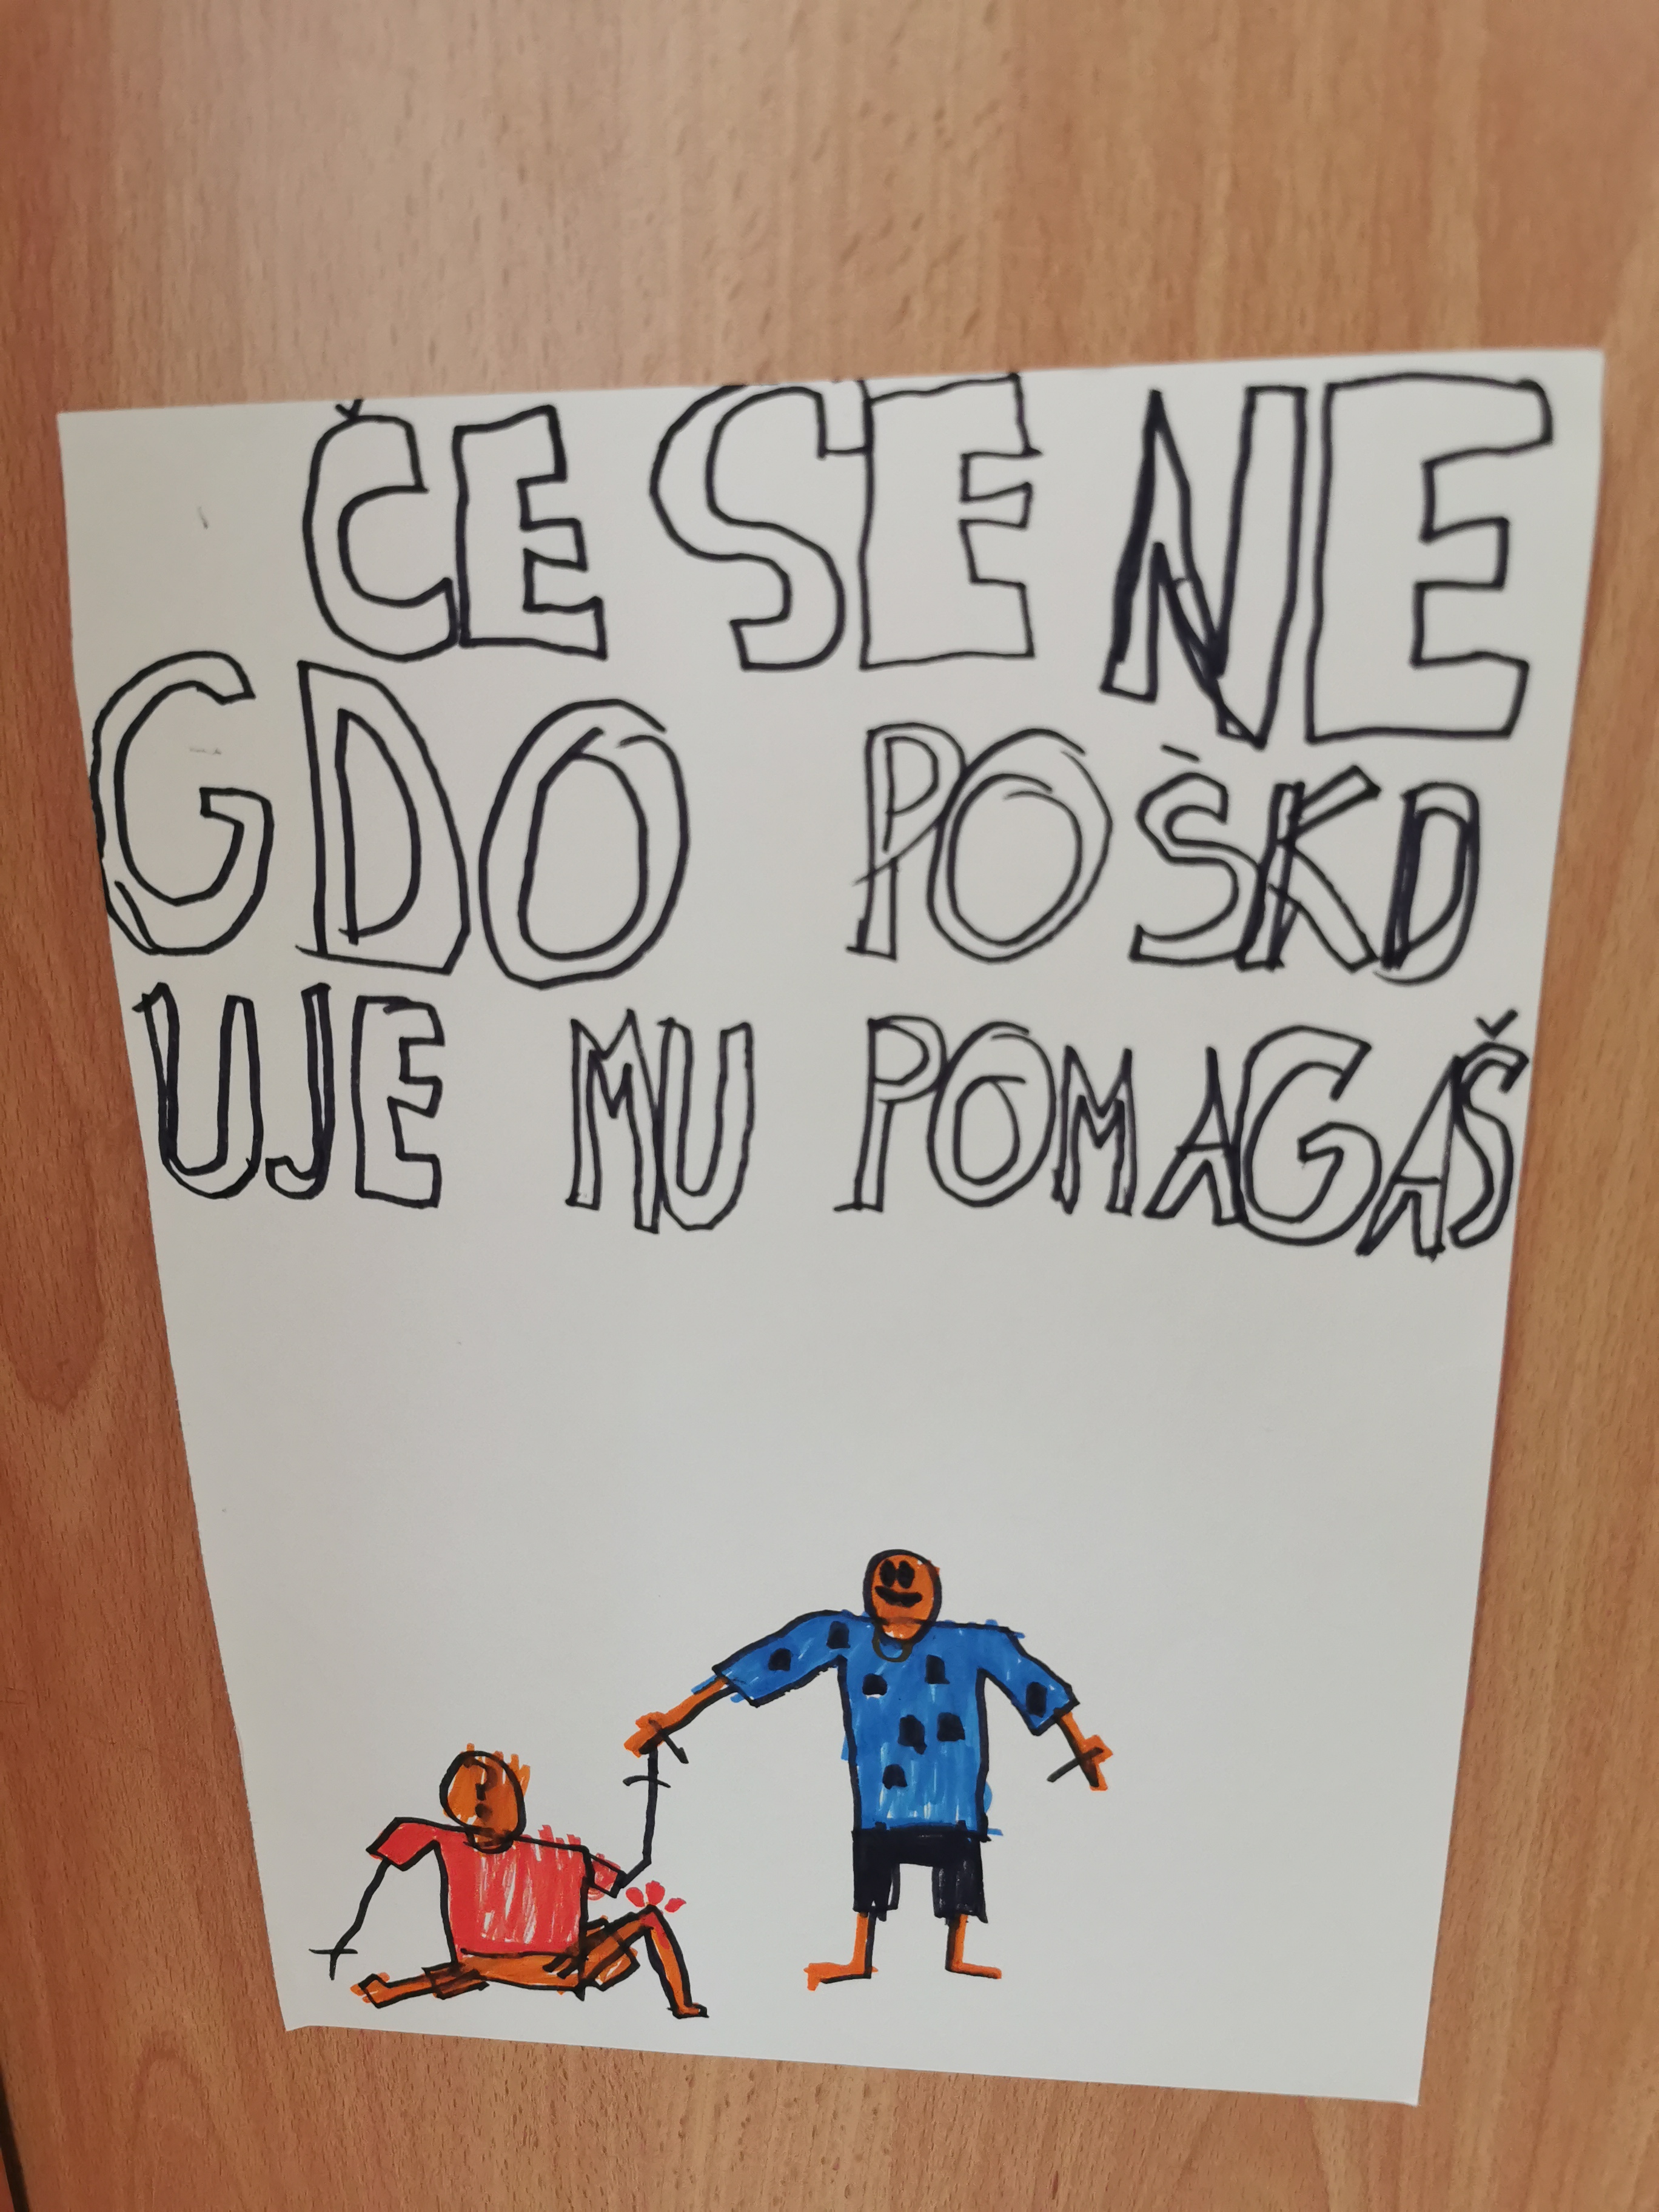 ČE SE NE
GDO POŠKD
UJE MU POMAGAŠ